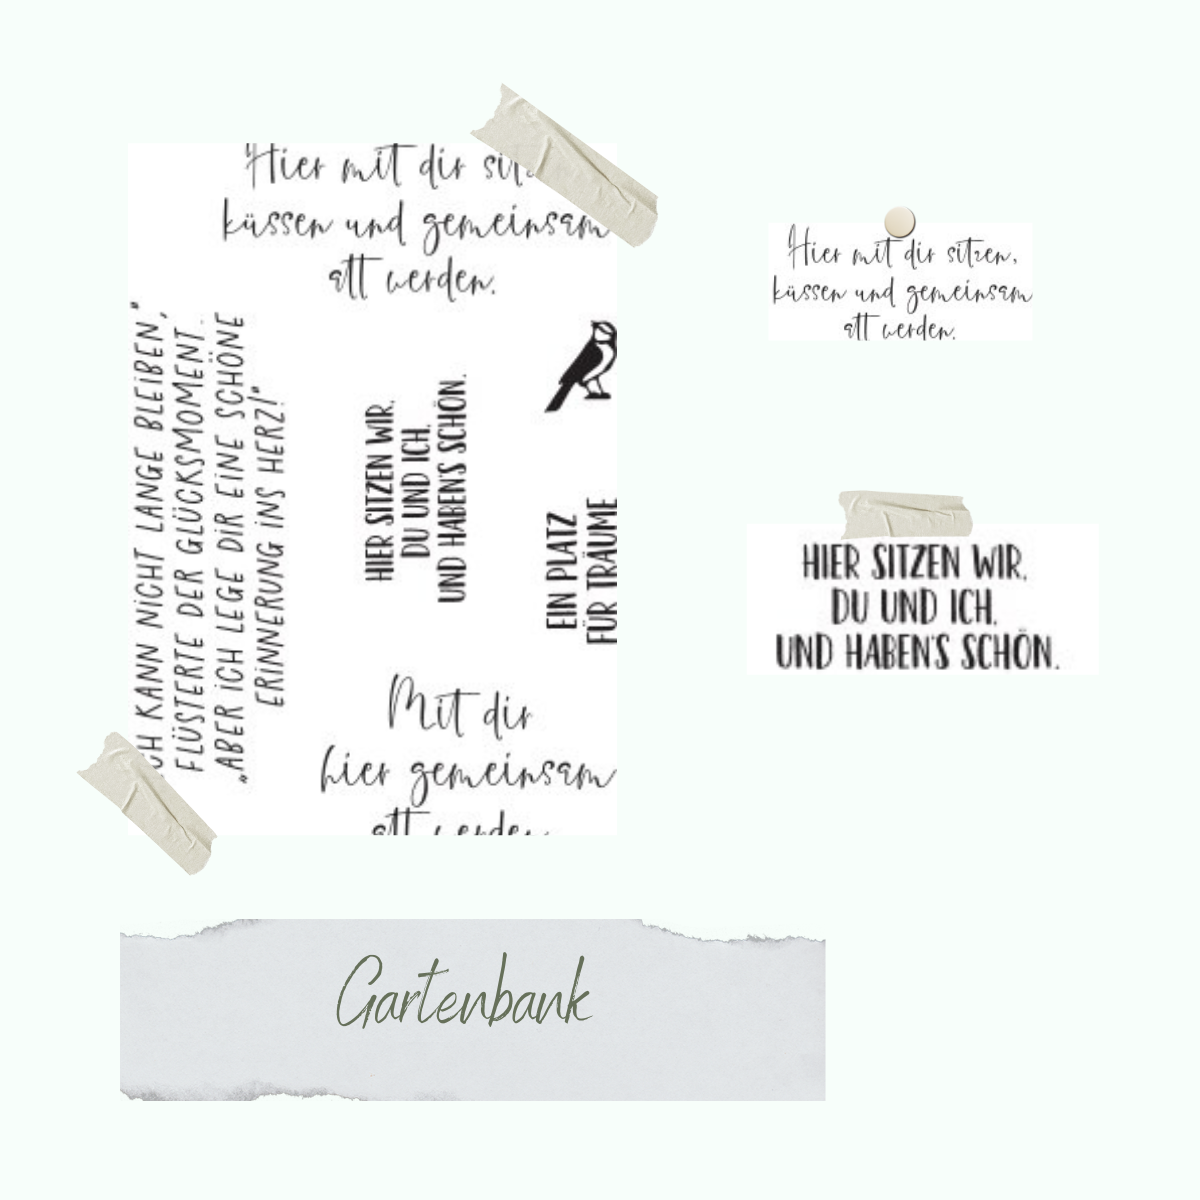 Hier mit dir
küssen und gemeinsam
alt werden.
KANN NICHT LANGE BLEIBEN,"
FLÜSTERTE DER GLÜCKSMOMENT.
„ABER ICH LEGE DIR EINE SCHÖNE
ERINNERUNG INS HERZ!"
HIER SITZEN WIR,
DU UND ICH,
UND HABEN'S SCHÖN.
EIN PLATZ
FÜR TRÄUME
Mit dir
hier gemeinsam
alt werden
Hier mit dir sitzen,
küssen und gemeinsam
alt werden.
HIER SITZEN WIR,
DU UND ICH,
UND HABEN'S SCHÖN.
Gartenbank